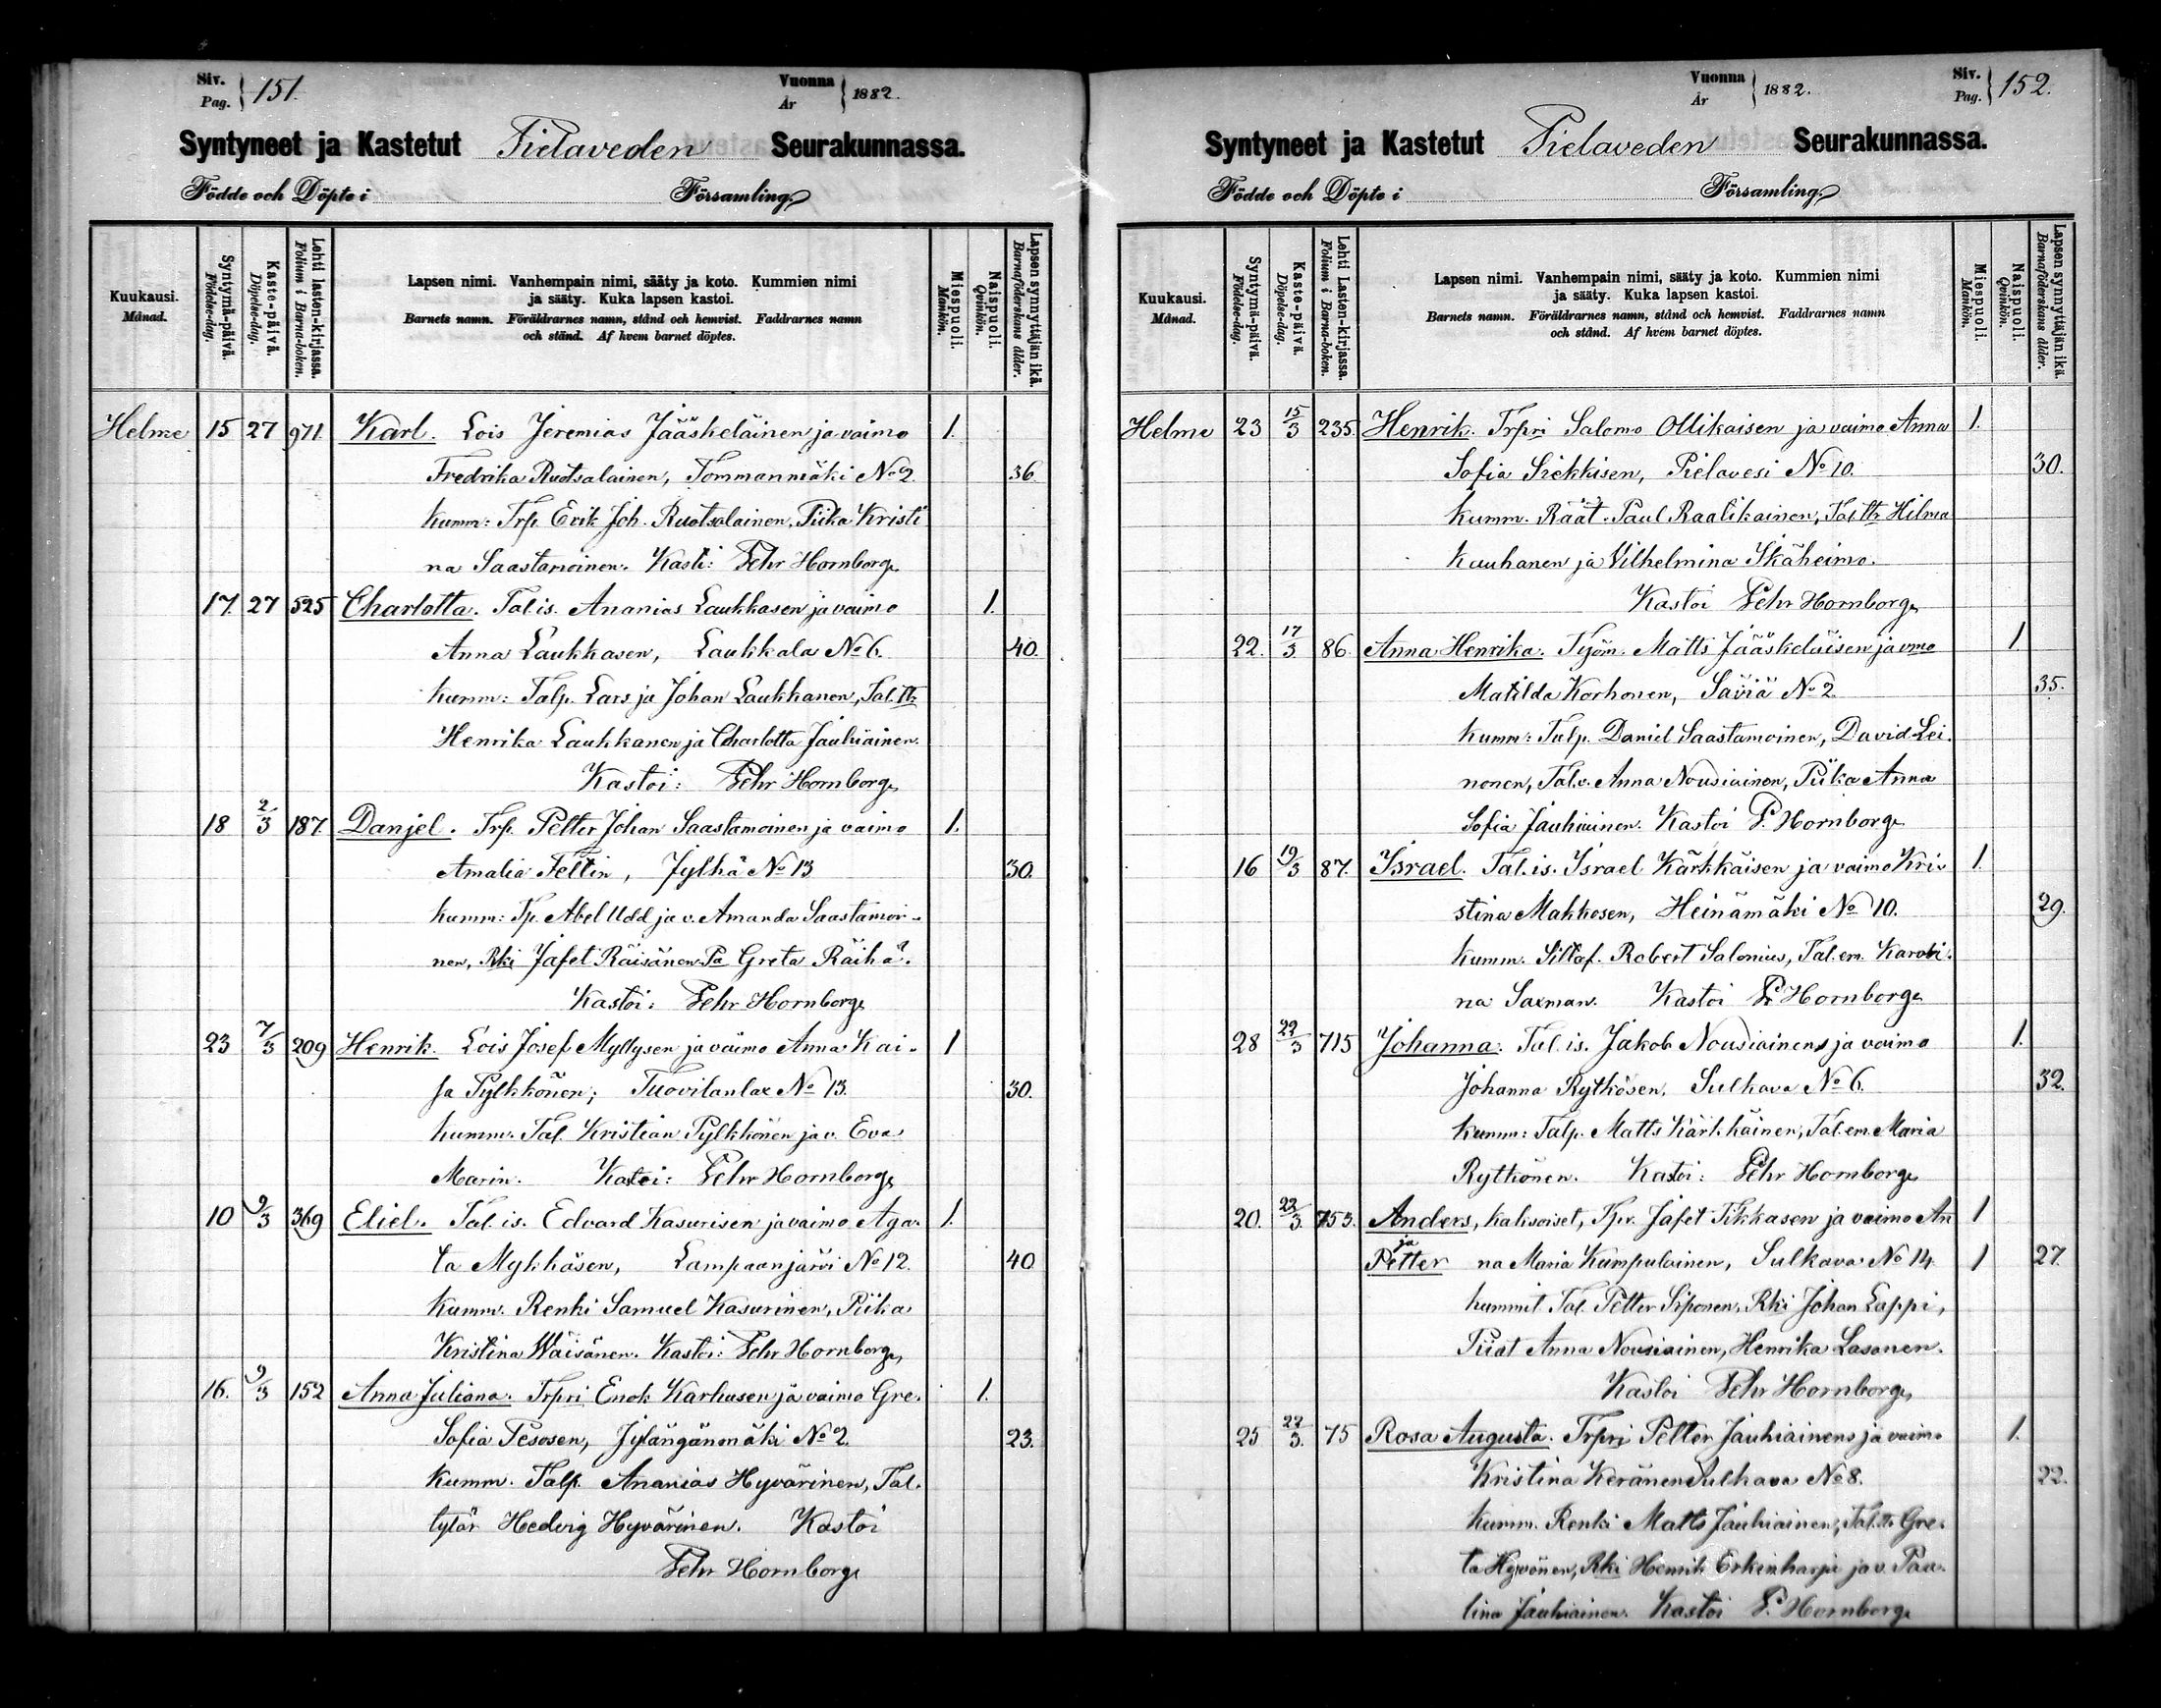 Siv. Pag. 151. Vuonna År 1882.
Syntyneet ja Kastetut Pielaveden Seurakunnassa.
Födde och Döpte i Församling.
Kuukausi. Månad.
Syntymä-päivä. Födelse-dag.
Kaste-päivä. Döpelse-dag.
Lehti lasten-kirjassa. Folium i Barna-boken.
Lapsen nimi. Vanhempain nimi, sääty ja koto. Kummien nimi
ja sääty. Kuka lapsen kastoi.
Barnets namn. Föräldrarnes namn, stånd och hemvist. Faddrarnes namn
och stånd. Af hvem barnet döptes.
Miespuoli. Mankön.
Naispuoli. Qvinkön.
Lapsen synnyttäjän ikä. Barnaföderskans ålder.
Helme 15 27 971 Karl. Lois Jeremias Jääskeläinen ja vaimo 1.
Fredrika Ruotsalainen, Tommanmäki No 2. 36.
Kumm: Trp. Erik Joh. Ruotsalainen, Piika Kristi
na Saastamoinen. Kasti: Pehr Hornborg.
17. 27 525 Charlotta. Tal.is. Ananias Laukkasen ja vaimo 1.
Anna Laukkasen, Laukkala No 6. 40.
kumm: Talp. Lars ja Johan Laukkanen, Tal.ttr
Henrika Laukkanen ja Charlotta Jauhiainen.
Kastoi: Pehr Hornborg.
18 2/3 187. Danjel. Trp. Petter Johan Saastamoinen ja vaimo 1.
Amalia Feltin, Jylhä No 13 30.
kumm: Tp. Abel Udd ja v. Amanda Saastamoi-
nen, Rki Jafet Räisänen Pa Greta Räihä.
Kastoi: Pehr Hornborg.
23 7/3 209 Henrik. Lois Josef Myllysen ja vaimo Anna Kai- 1
sa Pylkkönen; Tuovilanlax No 13. 30.
kumm. Tal. Kristian Pylkkönen ja v. Eva
Marin. Kastoi: Pehr Hornborg.
10 9/3 369 Eliel. Tal. is. Edvard Kasurisen ja vaimo Aga- 1.
ta Mykkäsen, Lampaanjärvi No 12. 40
Kumm. Renki Samuel Kasurinen, Piika
Kristina Wäisänen. Kastoi: Pehr Hornborg,
16. 9/3 152 Anna Juliana. Trpri Enok Karhusen ja vaimo Gre. 1.
Sofia Pesosen, Jylängänmäki No 2. 23.
Kumm. Talp. Ananias Hyvärinen, Tal.
tytär Hedvig Hyvärinen. Kastoi
Pehr Hornborg
Vuonna År 1882. Siv. Pag. 152.
Syntyneet ja Kastetut Pielaveden Seurakunnassa.
Födde och Döpte i Församling.
Kuukausi. Månad.
Syntymä-päivä. Födelse-dag.
Kaste-päivä. Döpelse-dag.
Lehti Lasten-kirjassa. Folium i Barna-boken.
Lapsen nimi. Vanhempain nimi, sääty ja koto. Kummien nimi
ja sääty. Kuka lapsen kastoi.
Barnets namn. Föräldrarnes namn, stånd och hemvist. Faddrarnes namn
och stånd. Af hvem barnet döptes.
Miespuoli. Mankön.
Naispuoli. Qvinkön.
Lapsen synnyttäjän ikä. Barnaföderskans ålder.
Helme 23 15/3 235. Henrik. Trpri Salomo Ollikaisen ja vaimo Anna 1.
Sofia Siekkisen, Pielavesi No 10. 30.
Kumm. Räät. Paul Raatikainen, Tal.ttr Hilma
Kauhanen ja Vilhelmina Ikäheimo.
Kastoi Pehr Hornborg.
22. 17/3 86. Anna Henrika. Työm. Matts Jääskeläisen ja vmo 1.
Matilda Korhonen, Säviä No 2. 35.
Kumm: Talp. Daniel Saastamoinen, David Lei-
nonen, Tal.v. Anna Nousiainen, Piika Anna
Sofia Jauhiainen. Kastoi P. Hornborg.
16 19/3 87. Israel. Tal. is. Israel Kärkkäisen ja vaimo Kri- 1.
stina Makkosen, Heinämäki No 10. 29.
Kumm. Robert Salonius, Tal. em. Karoli-
na Saxman. Kastoi Pr Hornborg.
28 22/3 715 Johanna. Tal. is. Jakob Nousiainen ja vaimo 1.
Johanna Rytkösen, Sulkava No 6. 32.
Kumm: Talp. Matts Kärkkäinen, Tal.em. Maria
Rytkönen. Kastoi: Pehr Hornborg.
20. 22/3. 753. Anders, kaksoiset, Tpr. Jafet Tikkasen ja vaimo An 1
ja Petter na Maria Kumpulainen, Sulkava No 14. 1 27.
kummit Tal. Petter Siponen, Rki Johan Lappi,
Piiat Anna Nousiainen, Henrika Lasonen.
Kastoi Pehr Hornborg,
25 22/3. 75 Rosa Augusta. Trpri Petter Jauhiainens ja vaimo 1.
Kristina Keränen Sulkava No 8. 22.
Kumm. Renki Matts Jauhiainen, Tal.tt. Gre-
ta Hyvönen, Rki Henrik Erkinharju ja v. Pau-
lina Jauhiainen. Kastoi P. Hornborg